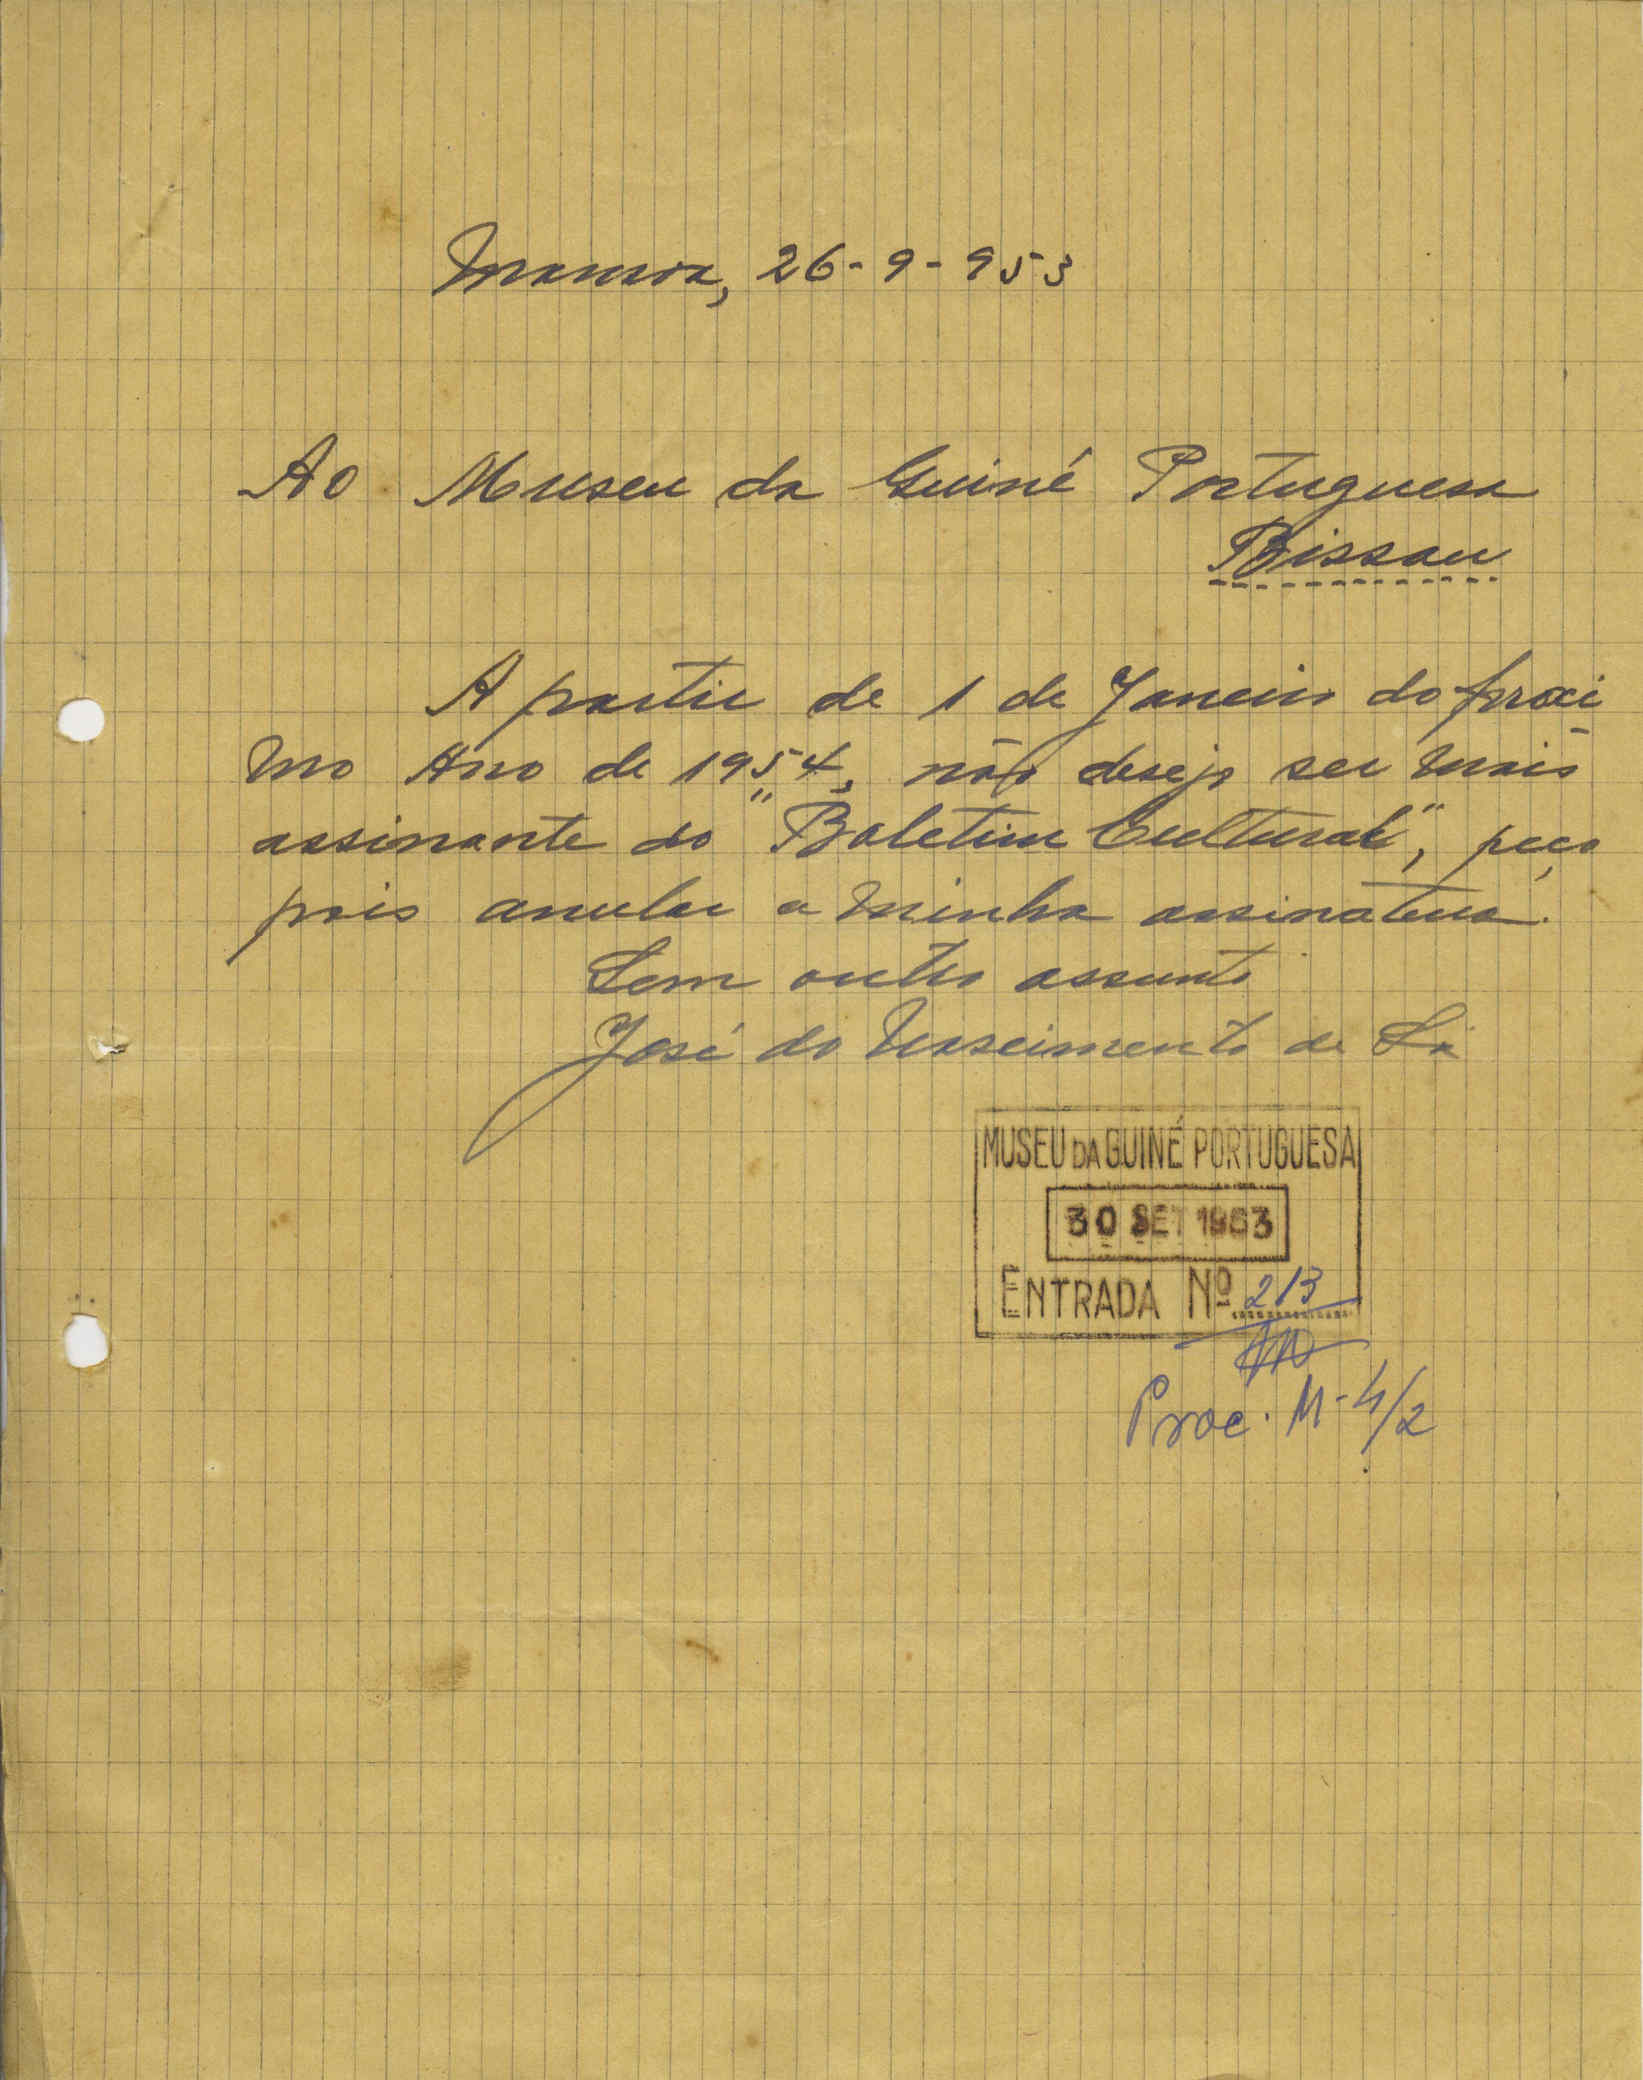 Mansoa, 26-9-953
Ao Museu da Guiné Portuguesa
Bissau
A partir de 1 de Janeiro do proxi
mo Ano de 1954, não desejo ser mais
assinante do "Boletim Cultural", peço
pois anular a minha assinatura.
Sem outro assunto
José do Nascimento de Sá
MUSEU DA GUINÉ PORTUGUESA
30 SET 1953
ENTRADA Nº 213
Proc. M-4/2